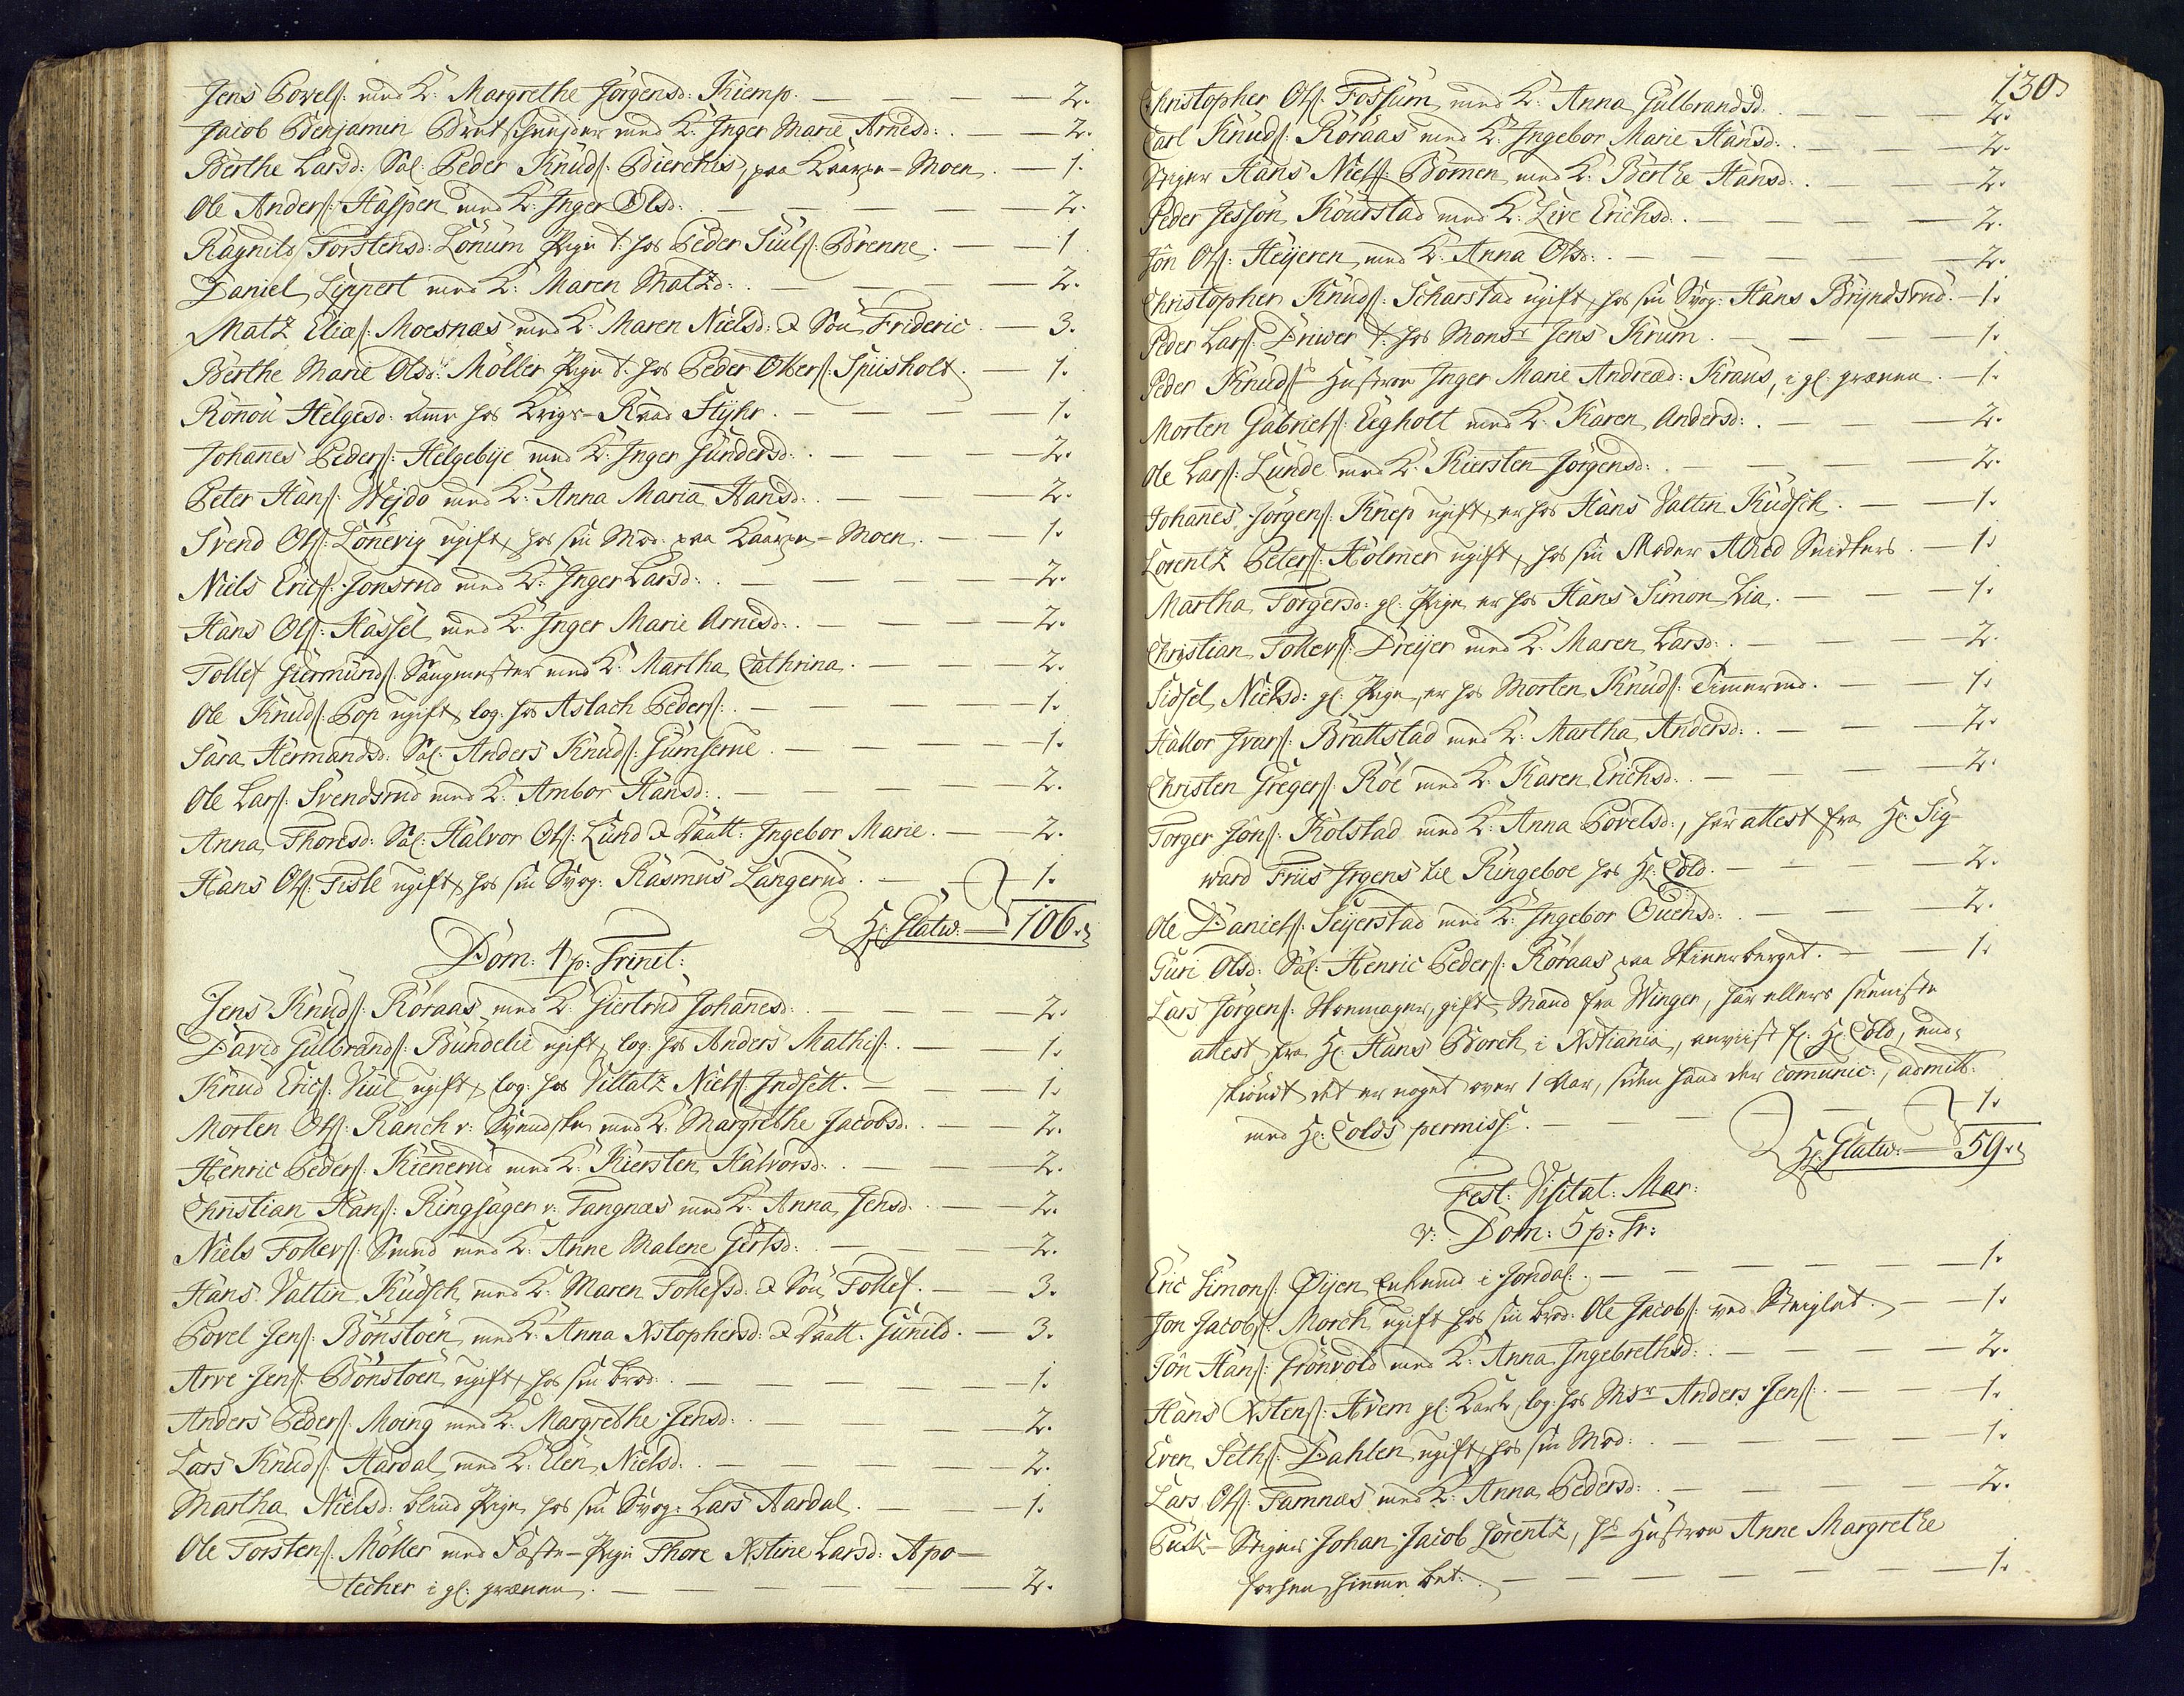 Jens Povels: med K: Margrethe Jörgensd: Kiemp. — 2.
Jacob Benjamin Bretschneyder med K: Inger Marie Arnesd: — 2.
Berthe Larsd: Sal: Peder Knuds: Bierchis, paa Kaarpe-Moen. — 1.
Ole Anders: Haspen med K: Inger Olsd: — 2.
Ragnild Torstensd: Lönum Pige t: hos Peder Siuls: Brenne. — 1
Daniel Lippert med K: Maren Matzd: — 2.
Matz Elias: Moesnæs med K: Maren Nielsd: & Sön Frideric — 3.
Berthe Marie Olsd: Möller Pige t: hos Peder Olfers: Spiisholt. — 1.
Rönnou Helgesd: Amme hos Krigs-Raad Flÿhr. — 1.
Johannes Peders: Helgebÿe med K: Inger Gundersd: — 2.
Peter Hans: Wejdo med K: Anna Maria Hansd: — 2.
Svend Ols: Lönevig ugift, hos sin Mod: paa Kaarpe-Moen. — 1.
Niels Erics: Jonsrud med K: Inger Larsd: — 2.
Hans Ols: Hassel med K: Inger Marie Arnesd: — 2.
Tollef Giermunds: Saugmester med K: Martha Cathrina. — 2.
Ole Knuds: Pop ugift, log: hos Aslach Peders: — 1.
Sara Hermandsd: Sal: Anders Knuds: Gumserne. — 1.
Ole Lars: Svendsrud med K: Ambor Hansd: — 2.
Anna Thoresd: Sal: Halvor Ols: Lund & Daatt: Ingebor Marie. — 2.
Hans Ols: Fisle ugift, hos sin Svog: Rasmus Langerud. — 1.
H: Statw: — 106.
Dom: 4 p: Trinit:
Jens Knuds: Röraas med K: Giertrud Johannesd: — 2.
David Gulbrands: Bundelie ugift, log: hos Anders Mathis: — 1.
Knud Erics: Viul ugift, log: hos Villatz Niels: Indsett. — 1.
Morten Ols: Ranch v: Svendsken med K: Margrethe Jacobsd. — 2.
Henric Peders: Kienerud med K: Kiersten Halvorsd: — 2.
Christian Hans: Ringsager v: Tangnæs med K: Anna Jensd. — 2.
Niels Tollevs: Smed med K: Anne Malene Gertsd: — 2.
Hans Valtin Kudsch med K: Maren Tollefsd. & Sön Tollef. — 3.
Povel Jens: Bönstöen med K: Anna Xstophersd: & Daatt. Gunild. — 3.
Arve Jens: Bönstöen ugift, hos sin brod: — 1.
Anders Peders: Moing med K: Margrethe Jensd: — 2.
Lars Knuds: Aardal med K: Elen Nielsd. — 2.
Martha Nielsd: blind Pige hos sin Svog: Lars Aardal. — 1.
Ole Torstens: Möller med Fæste-Pige Thore Xstine Larsd: Apo-
techer i gl: grænen. — 2.
130.
Christopher Ols: Fossum med K: Anna Gulbrandsd. — 2.
Carl Knuds: Röraas med K: Ingebor Marie Hansd: — 2.
Stiger Hans Niels: Bömen med K: Berthe Hansd: — 2.
Peder Jesson Kourstad med K: Live Erichsd: — 2.
Jön Ols: Heÿeren med K: Anna Olsd: — 2.
Christopher Knuds: Scharstad ugift, hos sin Svog: Hans Brÿndsrud. — 1.
Peder Lars: Driwer t: hos Monsr Jens Krum. — 1.
Peder Knuds: Hustroe Inger Marie Andreæd: Kraus, i gl: grænen. — 1.
Morten Gabriels: Eegholt med K: Karen Andersd: — 2.
Ole Lars: Lunde med K: Kiersten Jörgensd: — 2.
Johannes Jörgens: Knep ugift, er hos Hans Valtin Kudsch. — 1.
Lorentz Peters: Holmer ugift, hos sin Moder Alhed Snidkers. — 1.
Martha Torgersd: gl: Pige, er hos Hans Simon Lia. — 1.
Christian Tollevs: Dreÿer med K: Maren Larsd: — 2.
Sidsel Nielsd: gl: Pige, er hos Morten Knuds: Timerud. — 1.
Hallor Ivars: Brattstad med K: Martha Andersd: — 2.
Christen Gregers: Röe med K: Karen Erichsd. — 2.
Torger Jöns: Kolstad med K: Anna Povelsd:, har attest fra H: Sig-
ward Friis Irgens til Ringeboe hos H: Cold. — 2.
Ole Daniels: Seÿerstad med K: Ingebor Ouensd: — 2.
Guri Olsd: Sal: Henric Peders: Röraas paa Skinnerberget. — 1.
Lars Jörgens: Skomager, gift Mand fra Winger, har ellers seeniste
attest fra H: Hans Borch i Xstiania, anviist fl: H: Cold, end-
skiöndt det er noget over 1 Aar, siden hand der comunic:, admitt:
med H: Colds permiss: — 1.
H: Statw: — 59.
Fest: Visitat: Mar:
v: Dom: 5 p: Tr:
Eric Simons: Öÿen Enkemd i Jondal. — 1.
Jon Jacobs: Morch ugift hos sin brod: Ole Jacobs: ved Steiglet. — 1.
Jön Hans: Grönvold med K: Anna Ingebrethsd: — 2.
Hans Xstens: Hvem gl: Karl, log: hos Msr Anders Jens: — 1.
Even Seths: Dahlen ugift, hos sin Mod: — 1.
Lars Ols: Famnæs med K: Anna Pedersd: — 2.
Puk-Stiger Johan Jacob Lorentz, hs Hustroe Anne Margrethe
forhen hiemme bet: — 1.